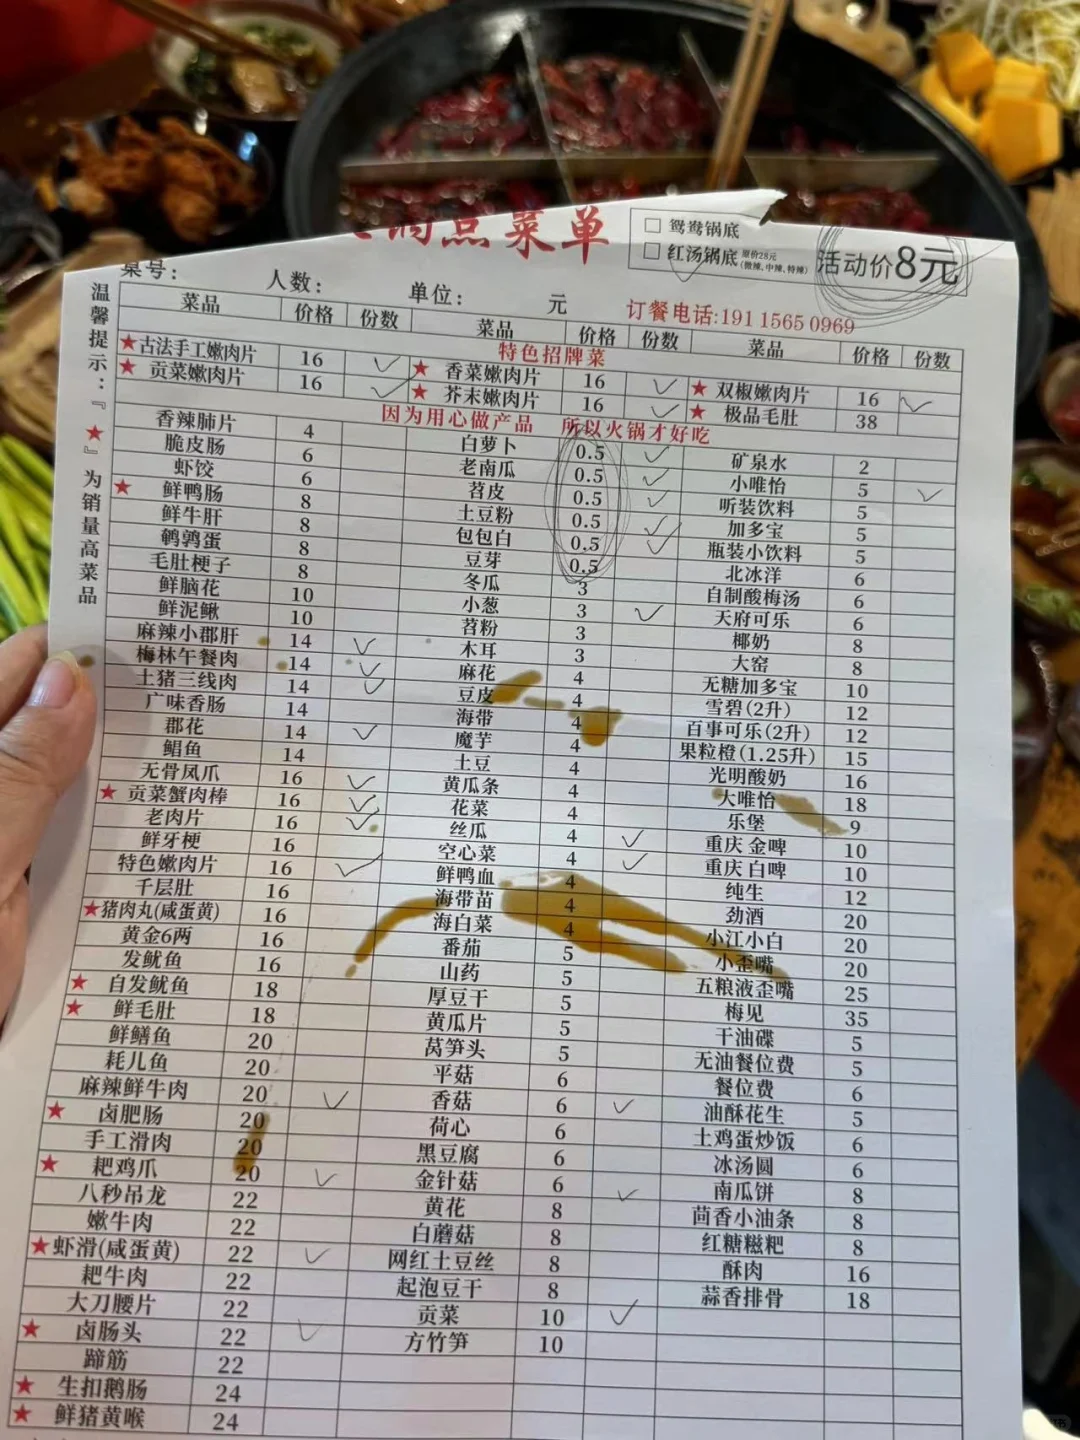 点菜单
鸳鸯锅底
红汤锅底 原价28元 (微辣、中辣、特辣)
活动价8元
桌号: 人数: 单位: 元 订餐电话:191 1565 0969
温馨提示:『★』为销量高菜品
菜品 价格 份数 菜品 价格 份数 菜品 价格 份数
特色招牌菜
★古法手工嫩肉片 16 ★香菜嫩肉片 16 ★双椒嫩肉片 16
★贡菜嫩肉片 16 ★芥末嫩肉片 16 ★极品毛肚 38
因为用心做产品 所以火锅才好吃
香辣肺片 4
脆皮肠 6
虾饺 6
★鲜鸭肠 8
鲜牛肝 8
鹌鹑蛋 8
毛肚梗子 8
鲜脑花 10
鲜泥鳅 10
麻辣小郡肝 14
梅林午餐肉 14
土猪三线肉 14
广味香肠 14
郡花 14
鲳鱼 14
无骨凤爪 16
★贡菜蟹肉棒 16
老肉片 16
鲜牙梗 16
特色嫩肉片 16
千层肚 16
★猪肉丸(咸蛋黄) 16
黄金6两 16
发鱿鱼 16
★自发鱿鱼 18
★鲜毛肚 18
鲜鳝鱼 20
耗儿鱼 20
麻辣鲜牛肉 20
★卤肥肠 20
手工滑肉 20
★耙鸡爪 20
八秒吊龙 22
嫩牛肉 22
★虾滑(咸蛋黄) 22
耙牛肉 22
大刀腰片 22
★卤肠头 22
蹄筋 22
★生扣鹅肠 24
★鲜猪黄喉 24
白萝卜 0.5
老南瓜 0.5
苕皮 0.5
土豆粉 0.5
包包白 0.5
豆芽 0.5
冬瓜 3
小葱 3
苕粉 3
木耳 3
麻花 4
豆皮 4
海带 4
魔芋 4
土豆 4
黄瓜条 4
花菜 4
丝瓜 4
空心菜 4
鲜鸭血 4
海带苗 4
海白菜 4
番茄 5
山药 5
厚豆干 5
黄瓜片 5
莴笋头 5
平菇 6
香菇 6
荷心 6
黑豆腐 6
金针菇 6
黄花 8
白蘑菇 8
网红土豆丝 8
起泡豆干 8
贡菜 10
方竹笋 10
矿泉水 2
小唯怡 5
听装饮料 5
加多宝 5
瓶装小饮料 5
北冰洋 6
自制酸梅汤 6
天府可乐 6
椰奶 8
大窑 8
无糖加多宝 10
雪碧(2升) 12
百事可乐(2升) 12
果粒橙(1.25升) 15
光明酸奶 16
大唯怡 18
乐堡 9
重庆金啤 10
重庆白啤 10
纯生 12
劲酒 20
小江小白 20
小歪嘴 20
五粮液歪嘴 25
梅见 35
干油碟 5
无油餐位费 5
餐位费 6
油酥花生 5
土鸡蛋炒饭 6
冰汤圆 6
南瓜饼 8
茴香小油条 8
红糖糍粑 8
酥肉 16
蒜香排骨 18